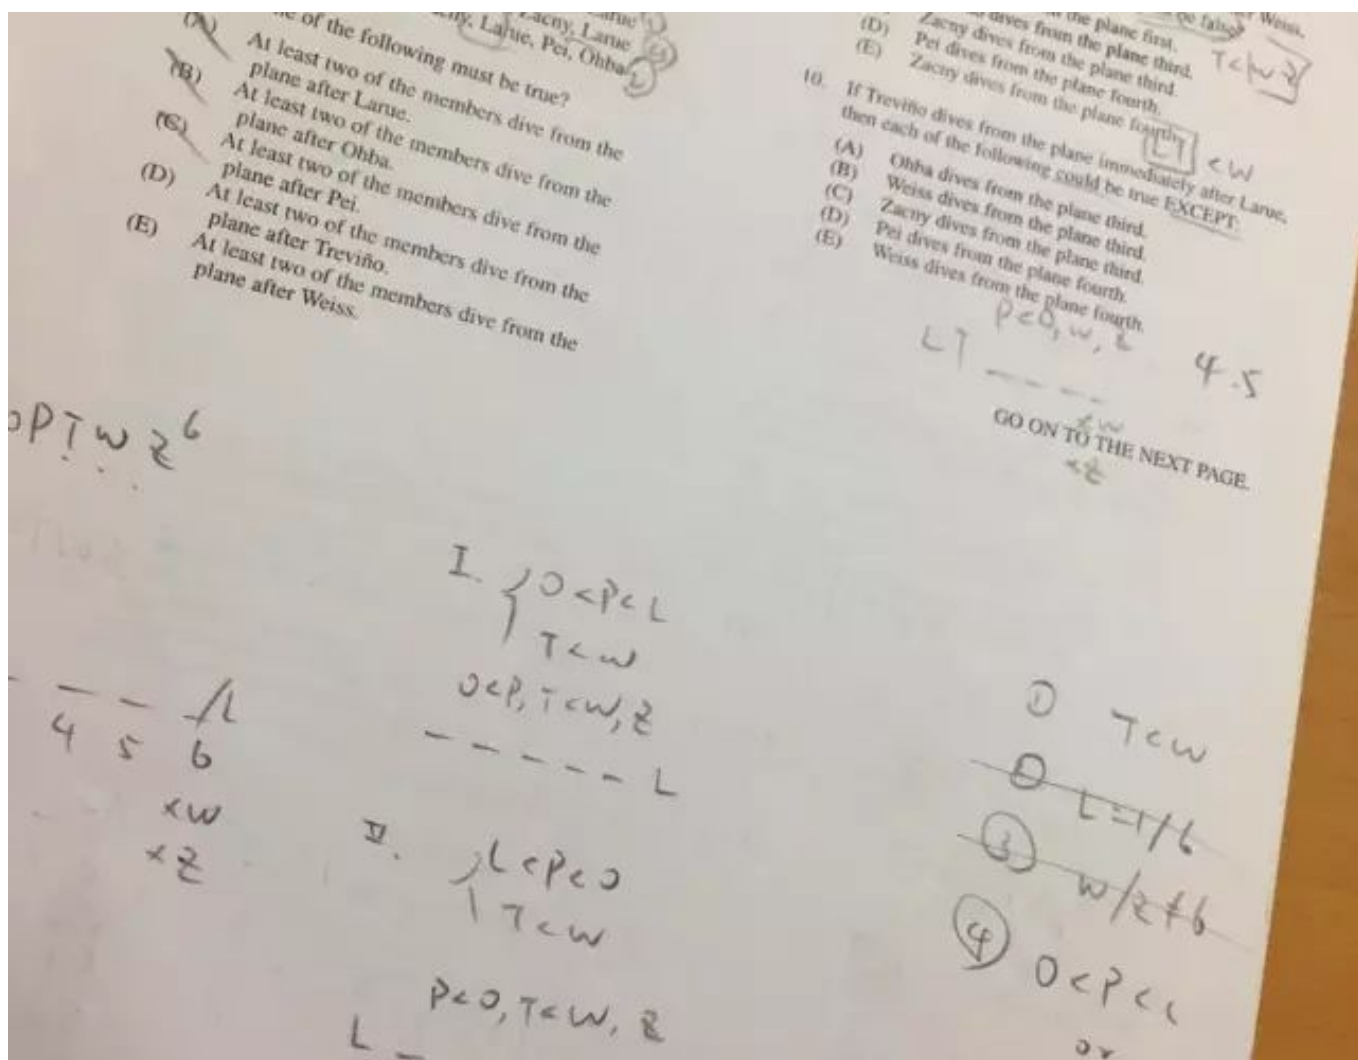 Zacny, Larue
Larue, Pei, Ohba
of the following must be true?
(A) At least two of the members dive from the
plane after Larue.
(B) At least two of the members dive from the
plane after Ohba.
(C) At least two of the members dive from the
plane after Pei.
(D) At least two of the members dive from the
plane after Treviño.
(E) At least two of the members dive from the
plane after Weiss.
the plane first.
dives from the plane third.
Zacny dives from the plane third.
(D) Pei dives from the plane fourth.
(E) Zacny dives from the plane fourth.
be false
Weiss,
T<W Z
10. If Treviño dives from the plane immediately after Larue,
then each of the following could be true EXCEPT:
LT < W
(A) Ohba dives from the plane third.
(B) Weiss dives from the plane third.
(C) Zacny dives from the plane third.
(D) Pei dives from the plane fourth.
(E) Weiss dives from the plane fourth.
P<O, W, Z
LT _ _ _ _
4.5
xW
xZ
GO ON TO THE NEXT PAGE.
OPTWZ 6
4 5 6
L
xW
xZ
I. { O<P<L
T<W
O<P, T<W, Z
_ _ _ _ _ L
II. { L<P<O
T<W
P<O, T<W, Z
L _
① T<W
L=1/6
③ W/Z≠6
④ O<P<L
or